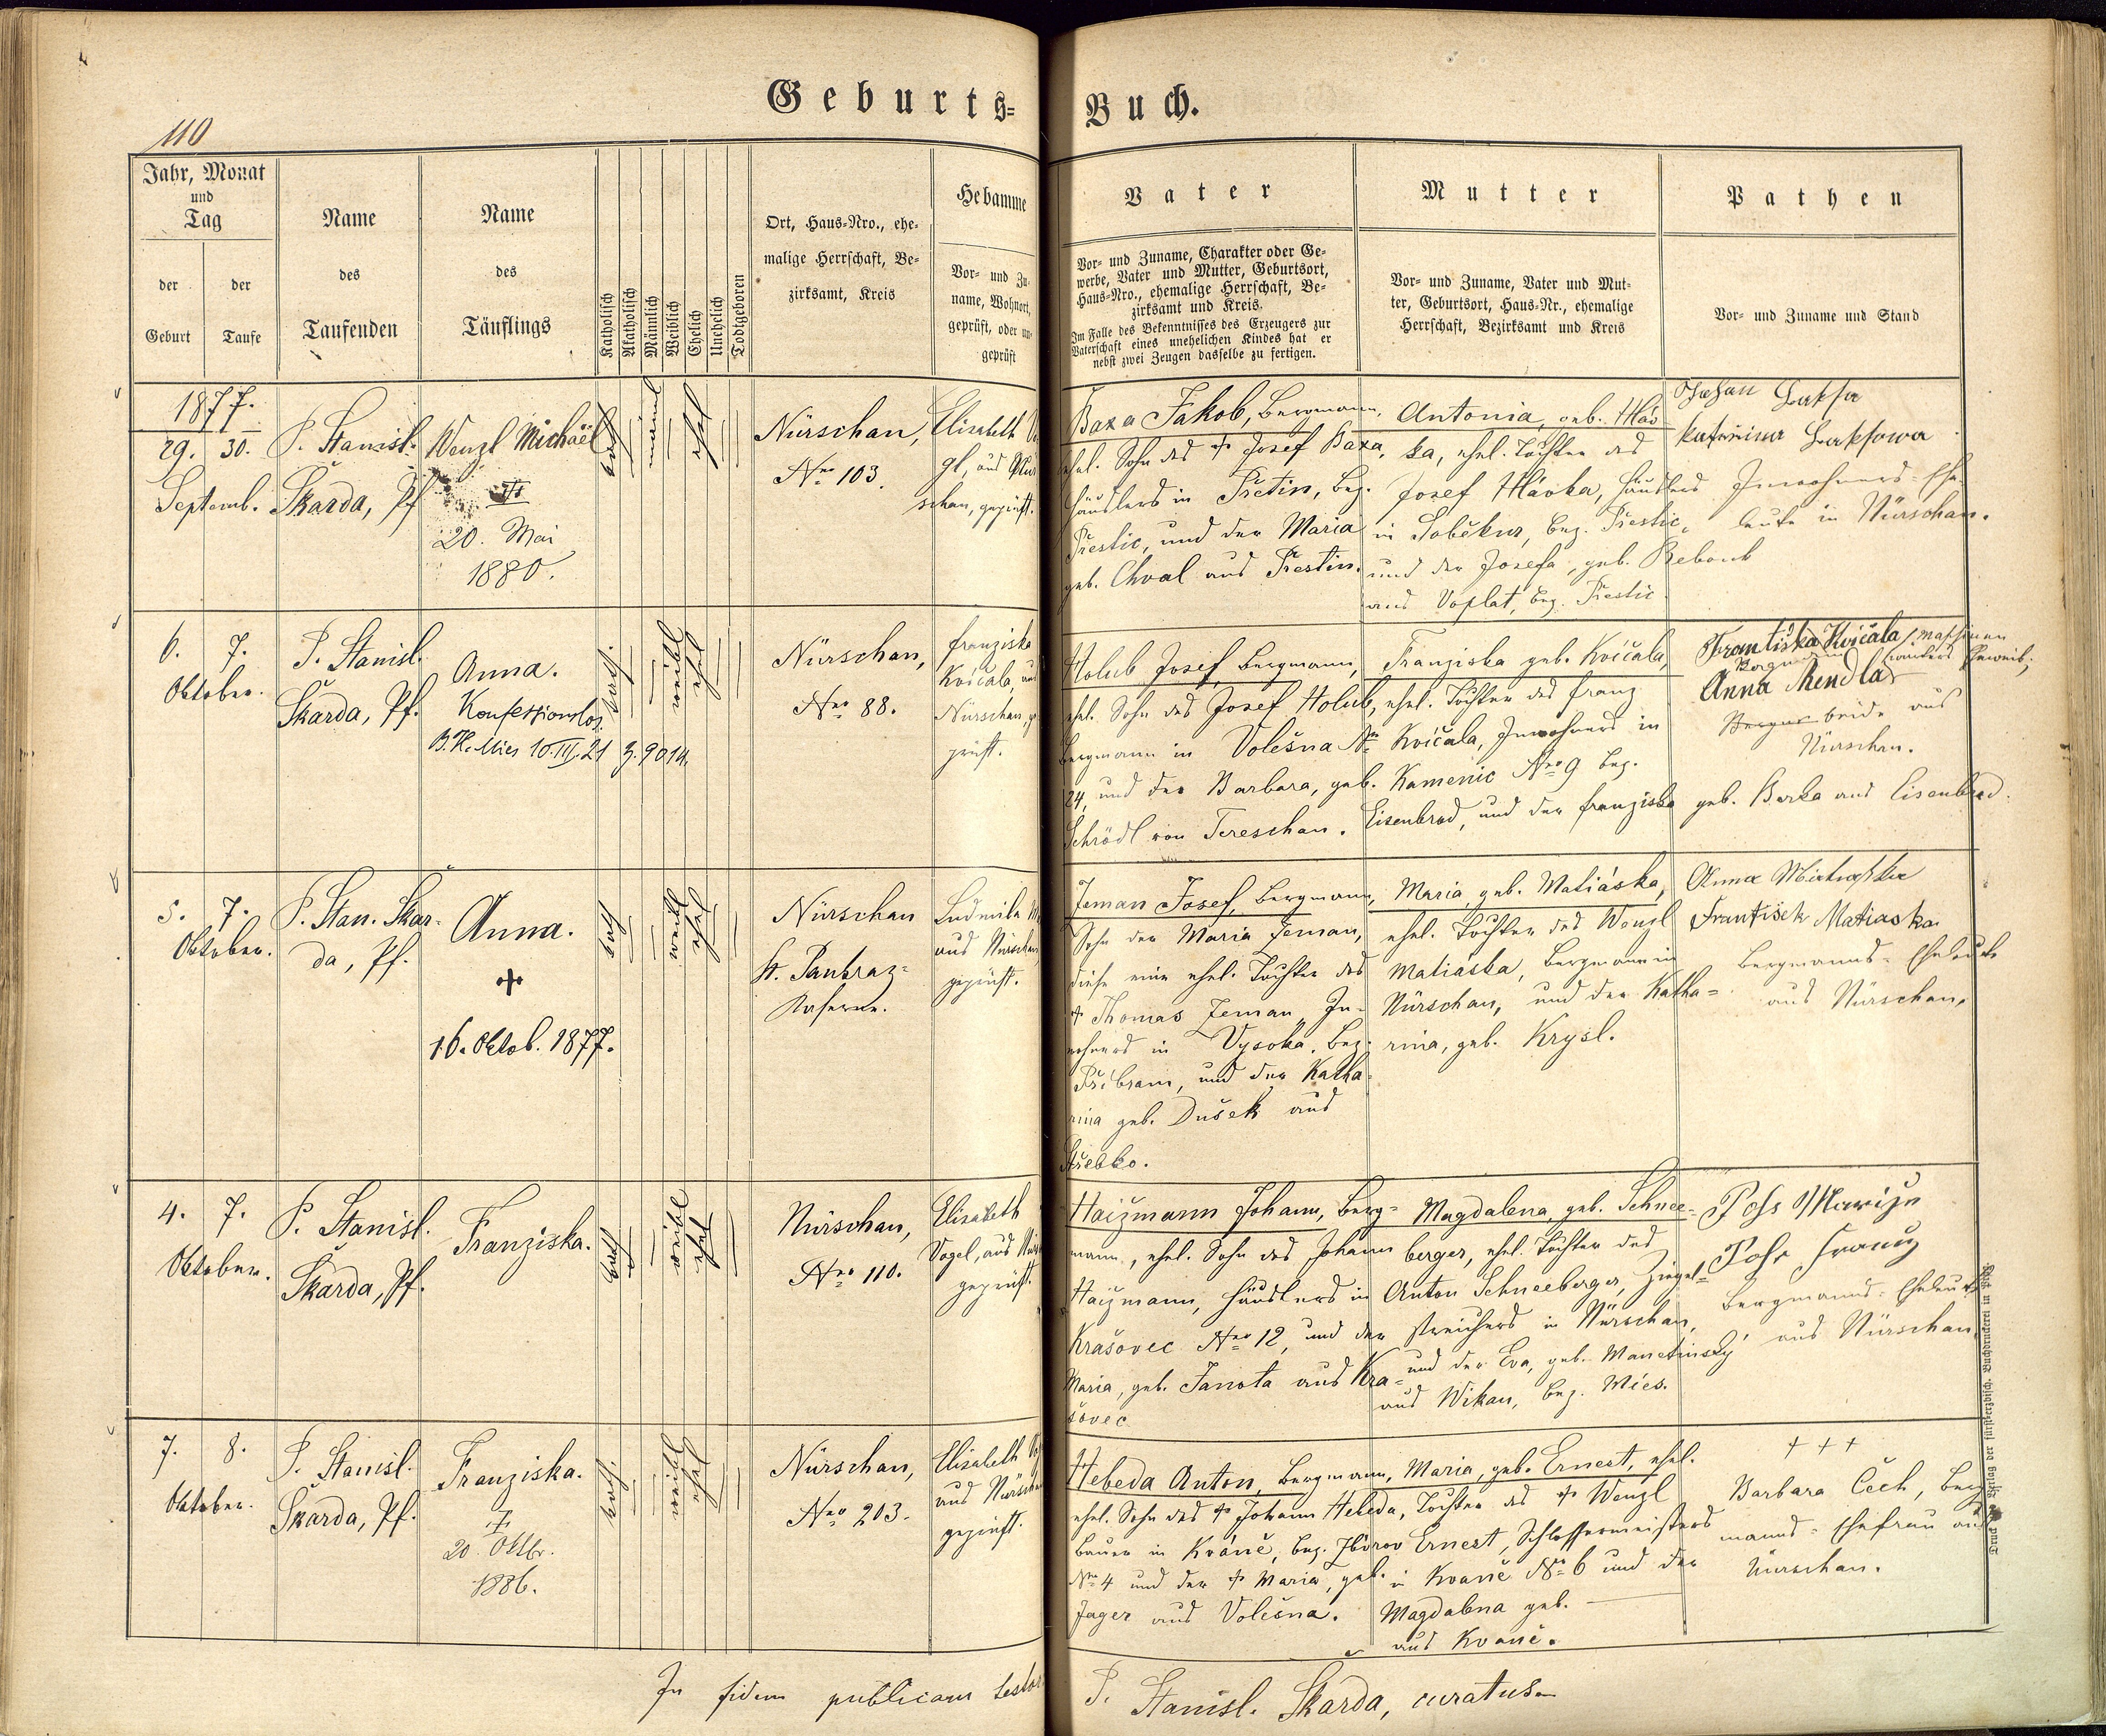 Geburts-Buch.
110
Jahr, Monat
und
Tag
der Geburt
der Taufe
Name
des
Taufenden
Name
des
Täuflings
Katholisch
Akatholisch
Männlich
Weiblich
Ehelich
Unehelich
Todtgeboren
Ort, Haus-Nro., ehe-
malige Herrschaft, Be-
zirksamt, Kreis
Hebamme
Vor- und Zu-
name, Wohnort,
geprüft, oder un-
geprüft
Vater
Vor- und Zuname, Charakter oder Ge-
werbe, Vater und Mutter, Geburtsort,
Haus-Nro., ehemalige Herrschaft, Be-
zirksamt und Kreis.
Im Falle des Bekenntnisses des Erzeugers zur
Vaterschaft eines unehelichen Kindes hat er
nebst zwei Zeugen dasselbe zu fertigen.
Mutter
Vor- und Zuname, Vater und Mut-
ter, Geburtsort, Haus-Nr., ehemalige
Herrschaft, Bezirksamt und Kreis
Pathen
Vor- und Zuname und Stand
1877.
29. 30.
Septemb.
P. Stanisl.
Škarda, Pf.
Wenzl Michaël
20. Mai
1880.
kath
männl
ehel
Nürschan,
Nro 103.
Elisabeth Vo
gl, aus Nür
schan, geprüft.
Baxa Jakob, Bergmann,
ehel. Sohn des † Josef Baxa,
Häuslers in Přetin, Bez.
Přestic, und der Maria
geb. Chval aus Přestin.
Antonia, geb. Hláv
ka, ehel. Tochter des
Josef Hlávka, Häuslers
in Soběkur, Bez. Přestic,
und der Josefa, geb. Rebouk
aus Voplat, Bez. Přestic
Johan
Inwohners-Ehe-
leute in Nürschan.
6. 7.
Oktober.
P. Stanisl.
Škarda, Pf.
Anna.
Konfessionslos
B.H. Mies 10.III.21 Z. 9014.
kath.
weibl
ehel
Nürschan,
Nro 88.
Franziska
Kvičala, aus
Nürschan, ge
prüft.
Holub Josef, Bergmann,
ehel. Sohn des Josef Holub,
Bergmann in Volešna Nr
24, und der Barbara, geb.
Schrödl von Tereschau.
Franziska geb. Kvičala,
ehel. Tochter des Franz
Kvičala, Inwohners in
Kamenic Nro 9 Bez.
Eisenbrod, und der Franziska geb. Berka aus Eisenbrod.
Frantiska Kvičala
Anna Mendla
beide aus
Nürschan.
5. 7.
Oktober.
P. Stan. Škar-
da, Pf.
Anna.
†
16. Oktob. 1877.
kath
weibl
ehel
Nürschan
St. Pankraz-
Kaserne.
Ludmila
aus Nürschan
geprüft.
Zeman Josef, Bergmann,
Sohn der Maria Zeman,
diese eine ehel. Tochter des
† Thomas Zeman, In-
wohners in Vysoka, Bez.
Příbram, und der Katha-
rina geb. Dušek aus
Třebko.
Maria, geb. Matiáska,
ehel. Tochter des Wenzl
Matiáska, Bergmann in
Nürschan, und der Katha-
rina, geb. Krysl.
Anna
Frantisek Matiaska
Bergmanns-Eheleute
aus Nürschan,
4. 7.
Oktober.
P. Stanisl.
Škarda, Pf.
Franziska.
kath
weibl
ehel
Nürschan,
Nro 110.
Elisabeth
Vogel, aus Nürs
geprüft.
Haizmann Johann, Berg-
mann, ehel. Sohn des Johann
Haizmann, Häuslers in
Krašovec Nro 12, und der
Maria, geb. Janota aus Kra-
šovec
Magdalena, geb. Schnee-
berger, ehel. Tochter des
Anton Schneeberger, Ziegel-
streichers in Nürschan,
und der Eva, geb. Manetinský
aus Wikau, Bez. Mies.
Franz
Bergmanns-Eheleute
aus Nürschan
7. 8.
Oktober.
P. Stanisl.
Škarda, Pf.
Franziska.
†
20. Oktbr.
1886.
kath.
weibl
ehel
Nürschan,
Nro 203.
Elisabeth Vo
aus Nürschan
geprüft.
Hebeda Anton, Bergmann,
ehel. Sohn des † Johann Hebeda,
Bauer in Kváně, Bez. Zbirov
Nro 4 und der † Maria, geb.
Jager aus Volešna.
Maria, geb. Ernest, ehel.
Tochter des † Wenzl
Ernest, Schlossermeisters
in Kvaně No 6 und der
Magdalena geb. —
aus Kvaně.
† † †
Barbara Čech, Berg
manns-Ehefrau aus
Nürschan.
In fidem publicam testor
P. Stanisl. Škarda, curatus